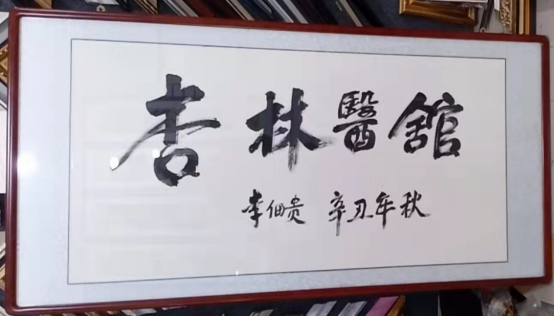 杏林醫舘
李佃贵 辛丑年秋